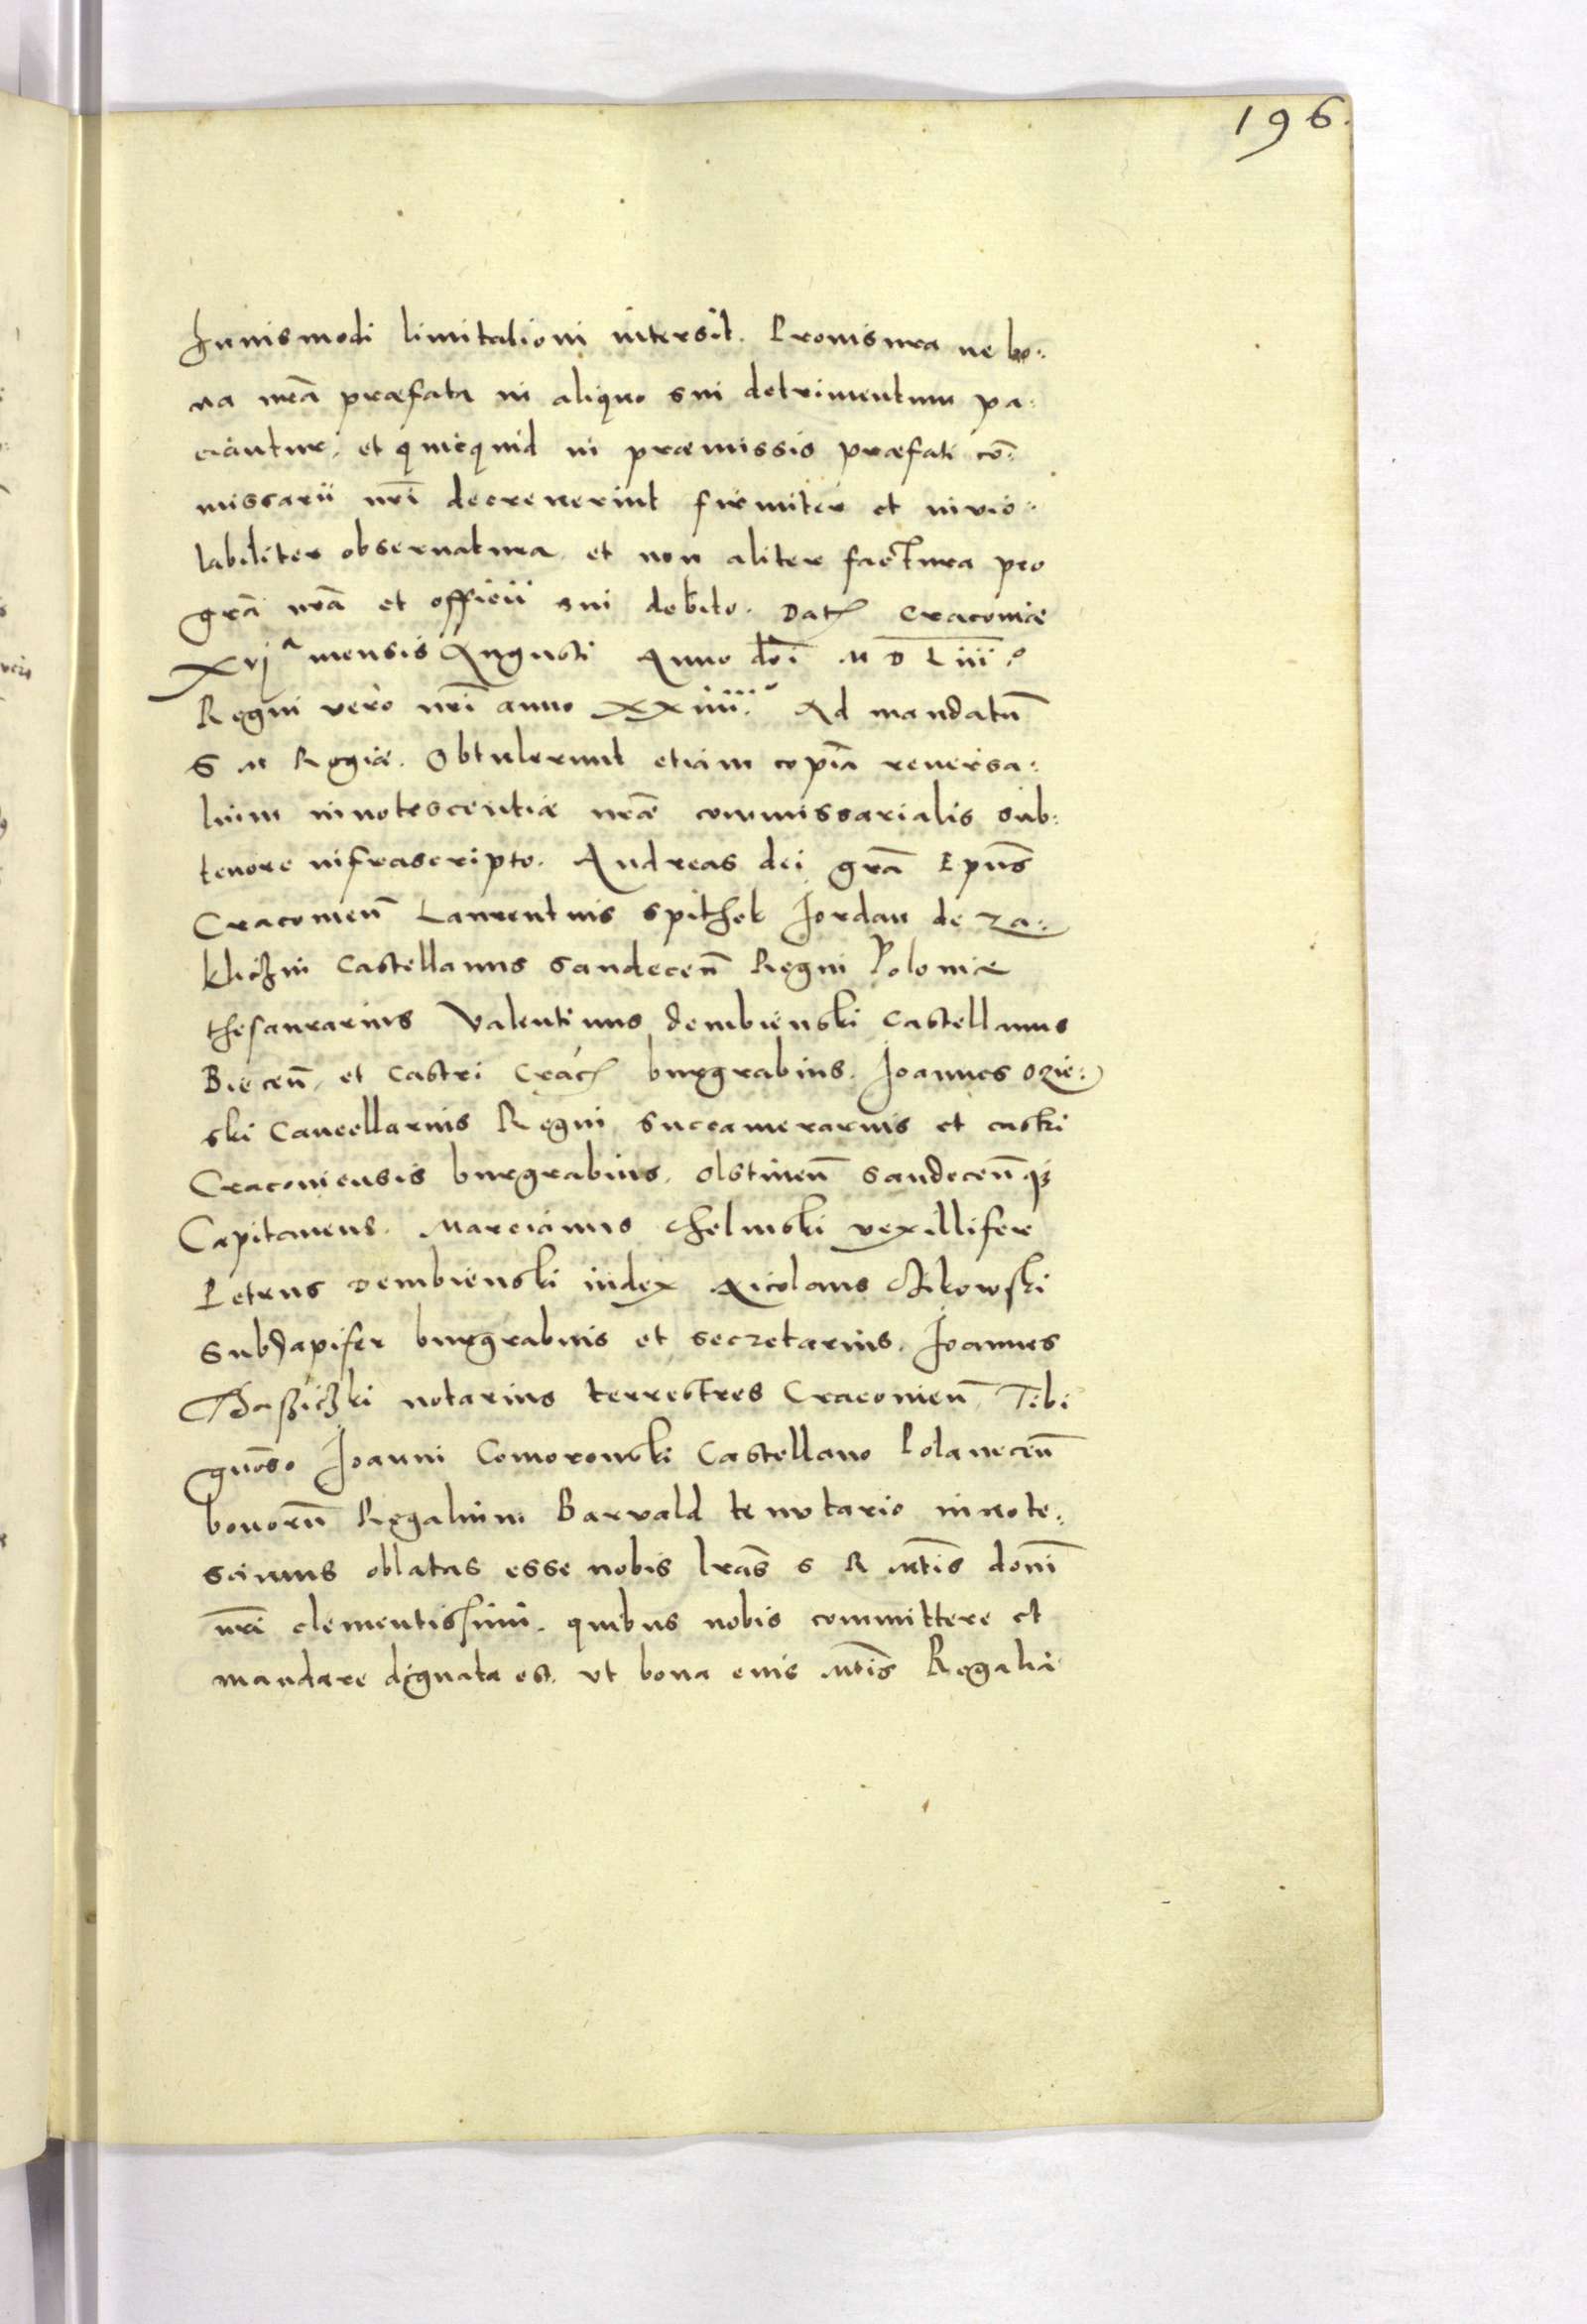 196.
huiusmodi limitationi intersit. Prouisura ne bo:
na nrā præfata in aliquo sui detrimentum pa:
ciantur, et quicquid in præmissis præfati cō:
missarii nrī decreuerint firmiter et inuio:
labiliter obseruatura et non aliter factura pro
grā nrā et officii sui debito. Dat Cracouiæ
xvj a mensis Augusti Anno doī M D L iii o
Regni vero nrī anno xxiiii. Ad mandatū
S M Regiæ. Obtulerunt etiam copiā reuersa:
lium innotescentiæ nrāe commissarialis sub:
tenore infrascripto. Andreas dei grā Epūs
Cracouieñ Laurentius spithek Jordan de za:
klichin Castellanus sandeceñ Regni Poloniæ
thesaurarius Valentinus dembienski Castellanus
Bieceñ, et Castri Crac burgrabius. Joannes ozie:
ski Cancellarius Regni succamerarius et castri
Cracouiensis burgrabius. olstineñ sandeceñ q3
Capitaneus. Marcianus chelmski vexillifer
Petrus Dembienski iudex Nicolaus Czikowski
Subdapifer burgrabius et secretarius. Joannes
Thasziczki notarius terrestres Cracouieñ, Tibi
gnōso Joanni Comorouski Castellano Polaneceñ
bonorū Regalium Barvald tenutario innote:
scimus oblatas esse nobis lrās S R Mtīs donī
nrī clementissimi. quibus nobis committere et
mandare dignata est. vt bona euis Mtīs Regalia